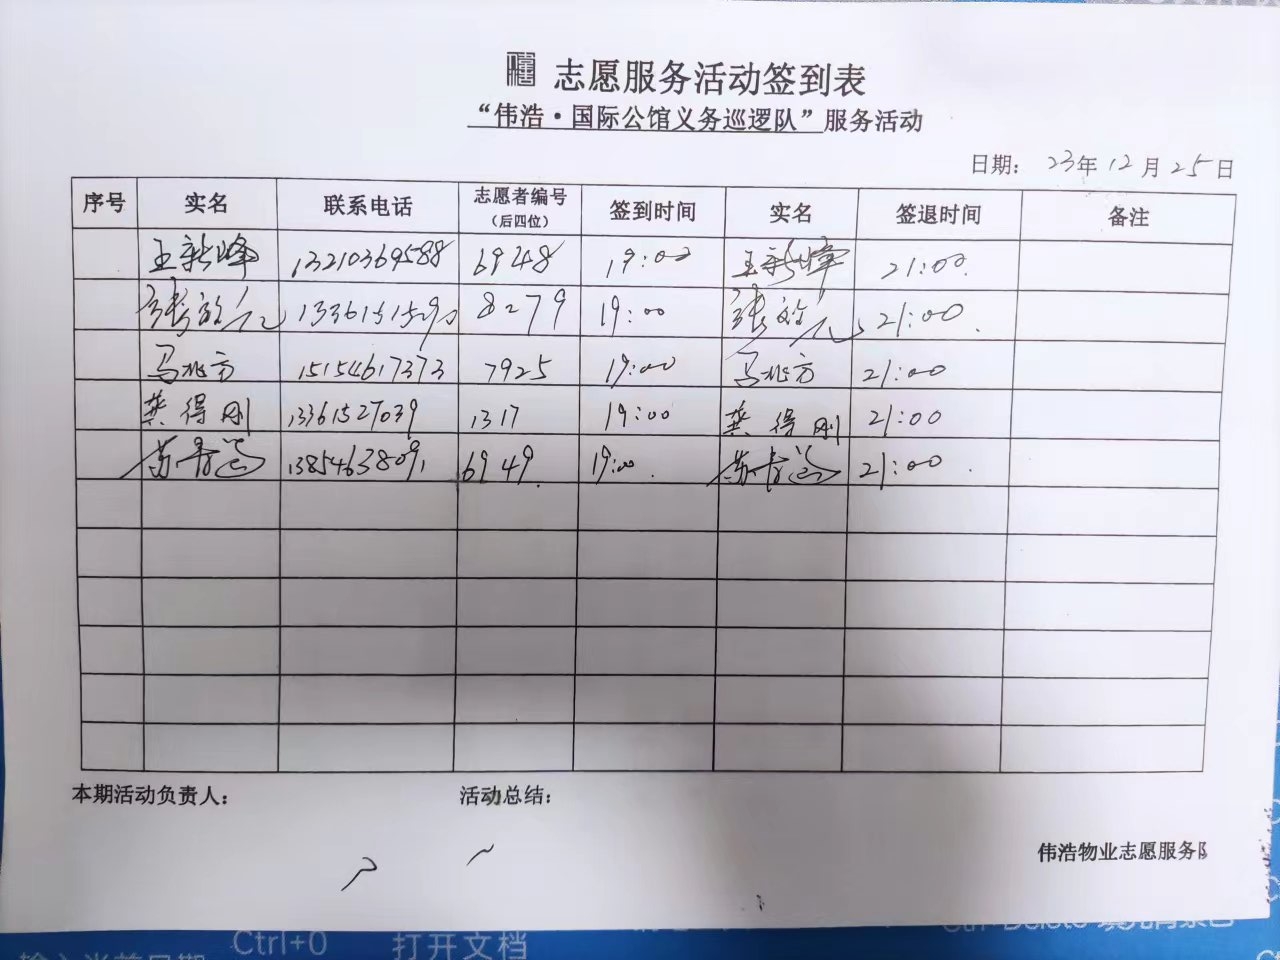 志愿服务活动签到表
“伟浩·国际公馆义务巡逻队”服务活动
日期: 23年12月25日
序号 实名 联系电话 志愿者编号(后四位) 签到时间 实名 签退时间 备注
王新峰 13210369588 6948 19:00 王新峰 21:00
张 8279 19:00 张 21:00
马兆方 15154617373 7925 19:00 马兆方 21:00
龚得刚 13361527039 1317 19:00 龚得刚 21:00
苏 13854638091 6949 19:00 苏 21:00
本期活动负责人: 活动总结:
伟浩物业志愿服务队
Ctrl+O 打开文档